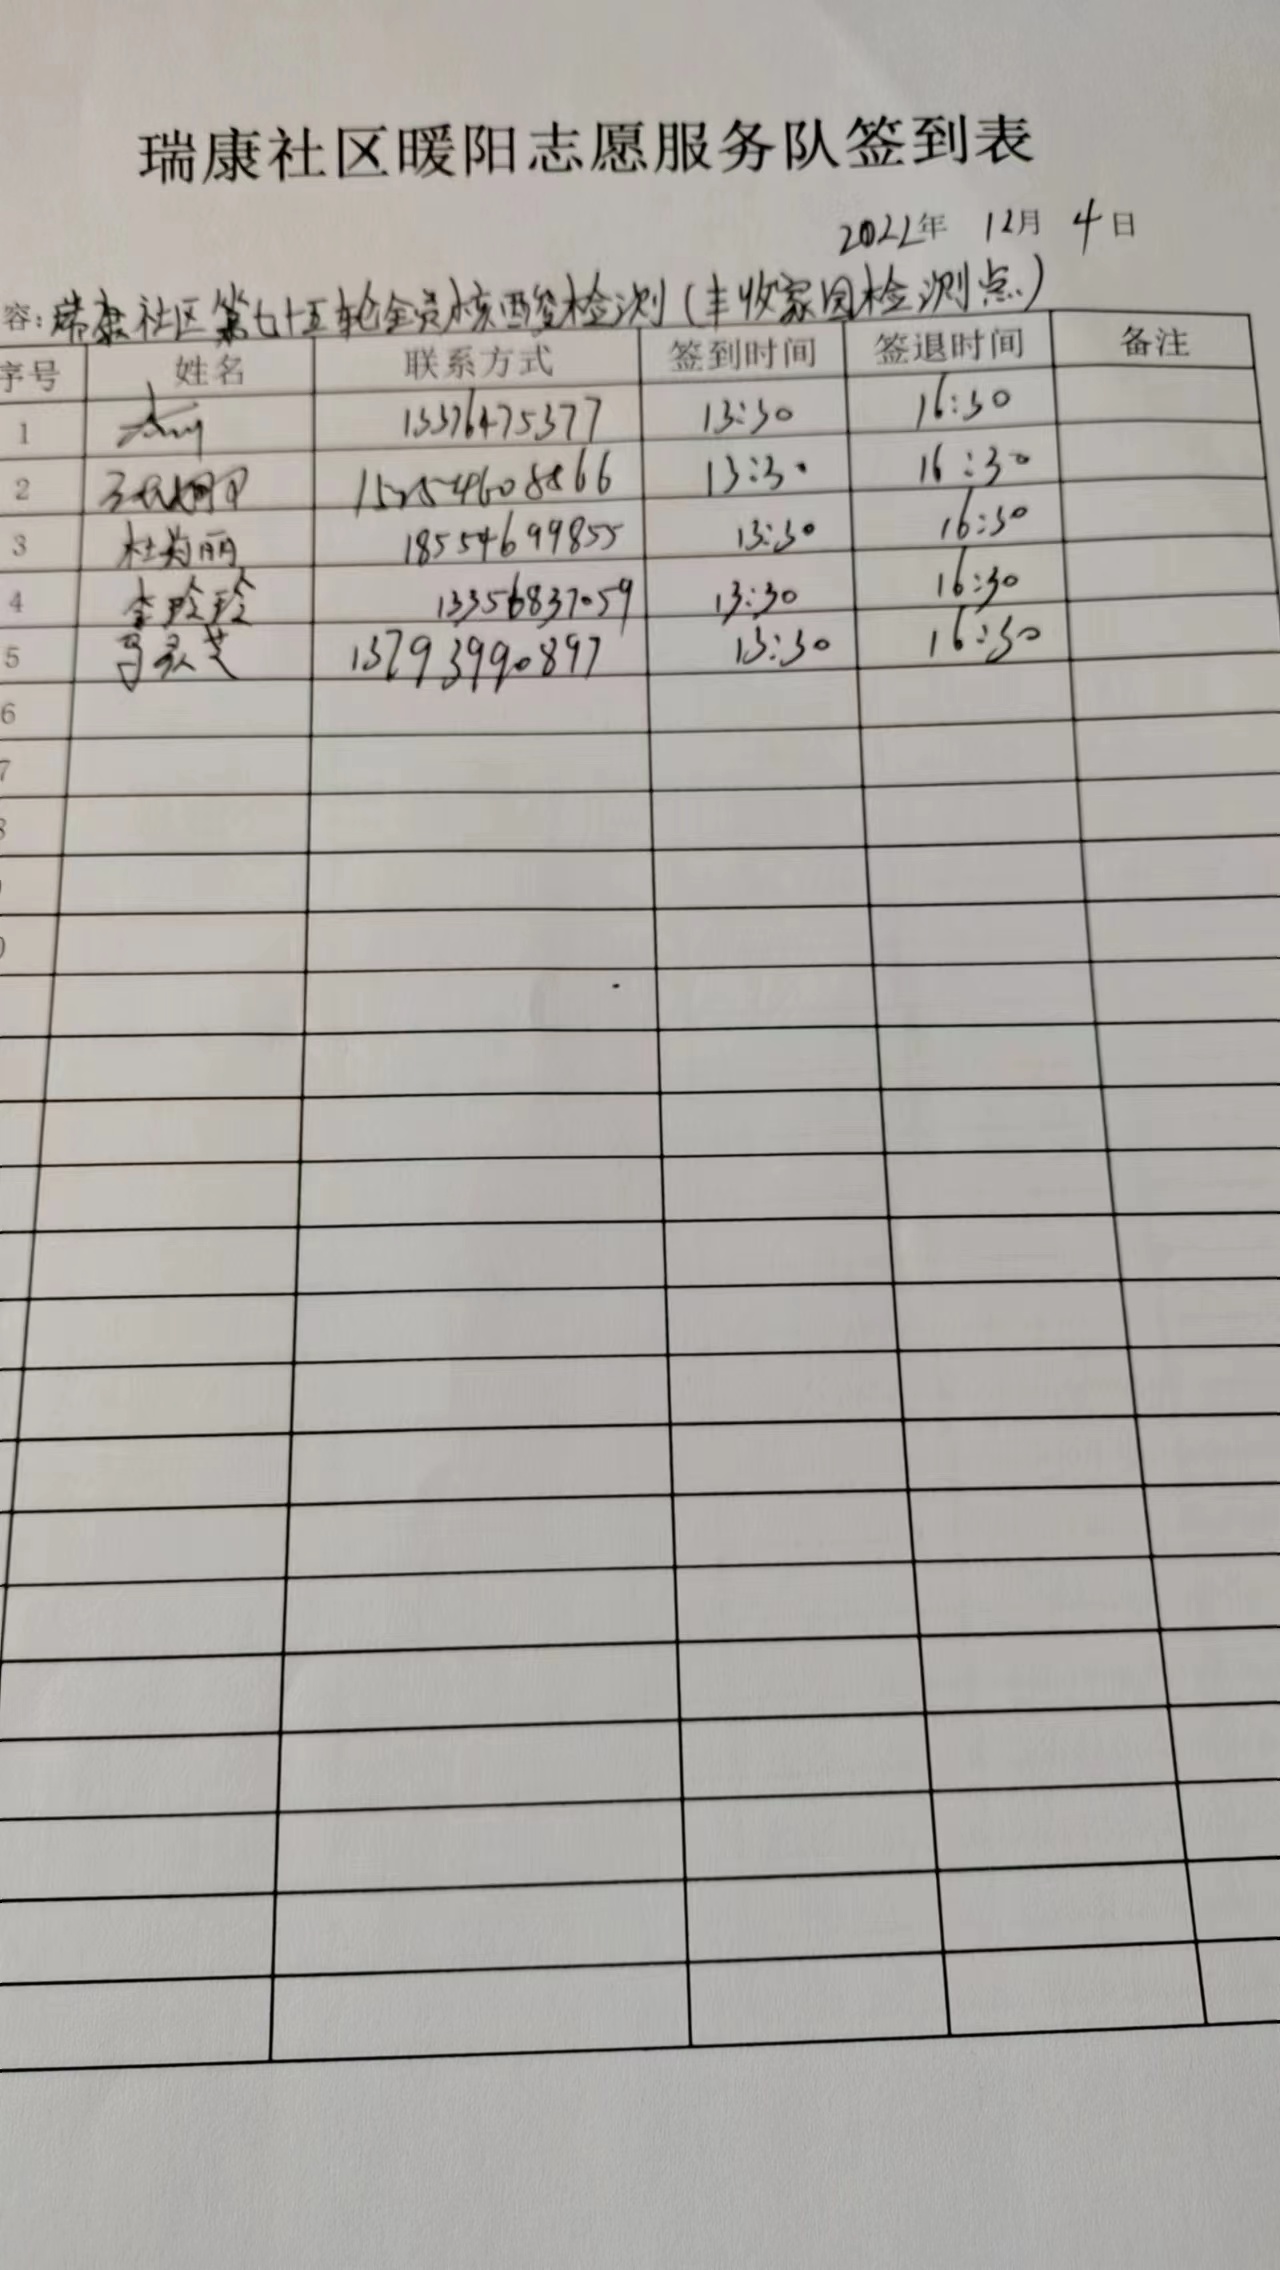 瑞康社区暖阳志愿服务队签到表
2022年 12月 4日
容: 瑞康社区第七十五轮全员核酸检测(丰收家园检测点)
序号 姓名 联系方式 签到时间 签退时间 备注
1 13376475377 13:30 16:30
2 13:30 16:30
3 杜尚丽 18554699855 13:30 16:30
4 李玲玲 13356837059 13:30 16:30
5 马灵芝 13793990897 13:30 16:30
6
7